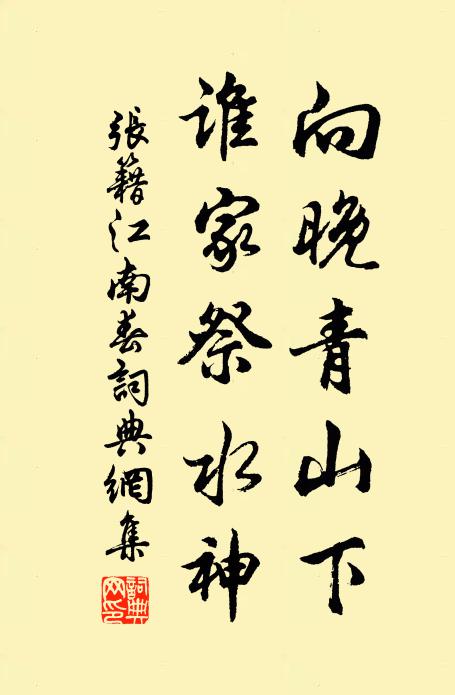 向晚青山下
誰家祭水神
張籍江南春詞典網集
詞典
网印